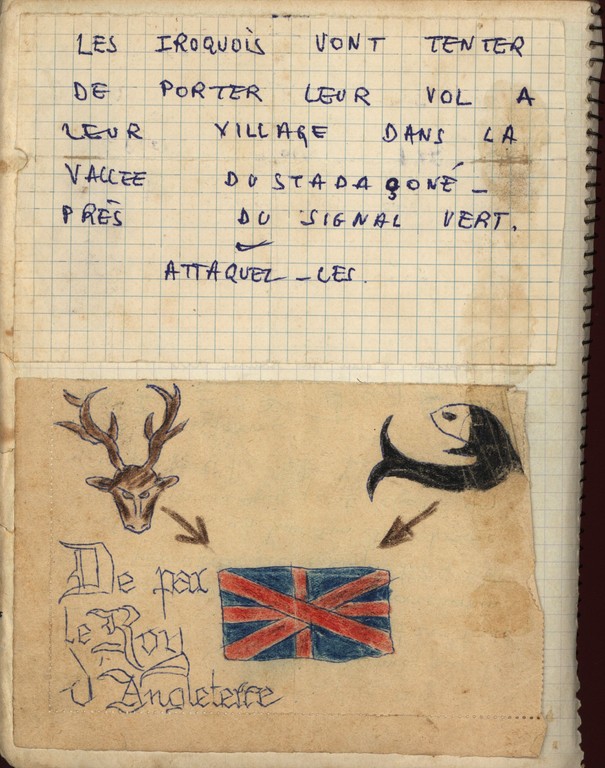 LES IROQUOIS VONT TENTER
DE PORTER LEUR VOL A
LEUR VILLAGE DANS LA
VALLEE DU STADAÇONÉ_
PRÈS DU SIGNAL VERT.
ATTAQUEZ_LES.
De par
le Roy
d'Angleterre